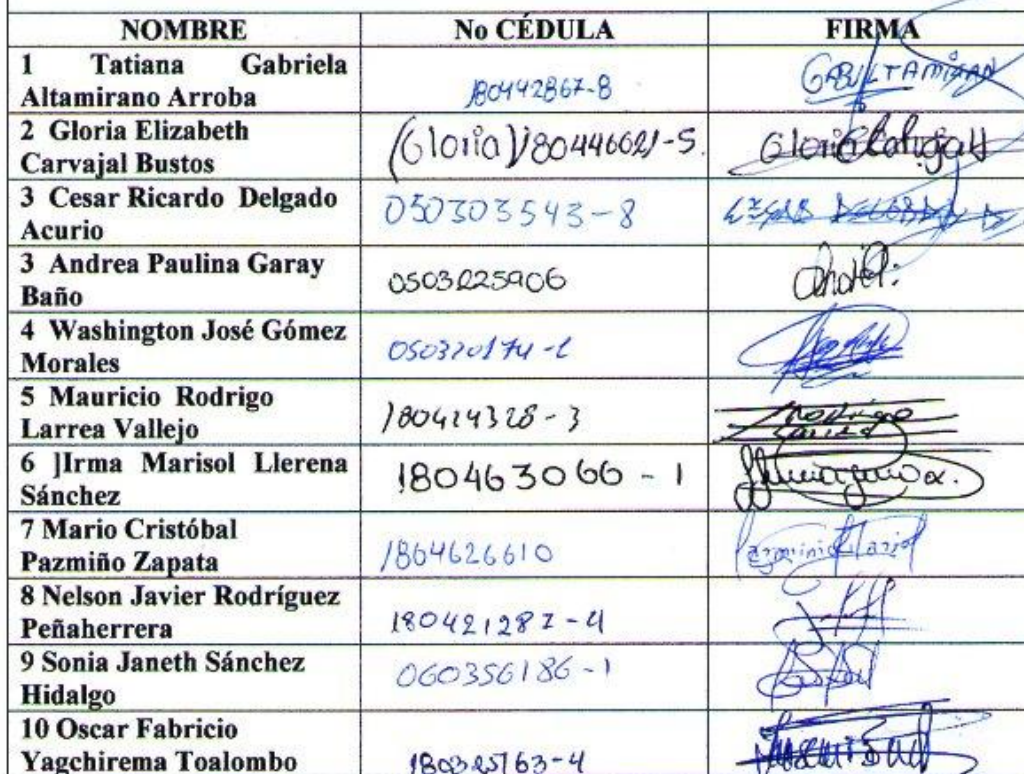 NOMBRE No CÉDULA FIRMA
1 Tatiana Gabriela
Altamirano Arroba 180442867-8
2 Gloria Elizabeth
Carvajal Bustos (Gloria) 180446021-5.
3 Cesar Ricardo Delgado
Acurio 050303543-8
3 Andrea Paulina Garay
Baño 0503225906
4 Washington José Gómez
Morales
5 Mauricio Rodrigo
Larrea Vallejo 180414328-3
6 ]Irma Marisol Llerena
Sánchez 180463066-1
7 Mario Cristóbal
Pazmiño Zapata 1804626610
8 Nelson Javier Rodríguez
Peñaherrera
9 Sonia Janeth Sánchez
Hidalgo 060356186-1
10 Oscar Fabricio
Yagchirema Toalombo